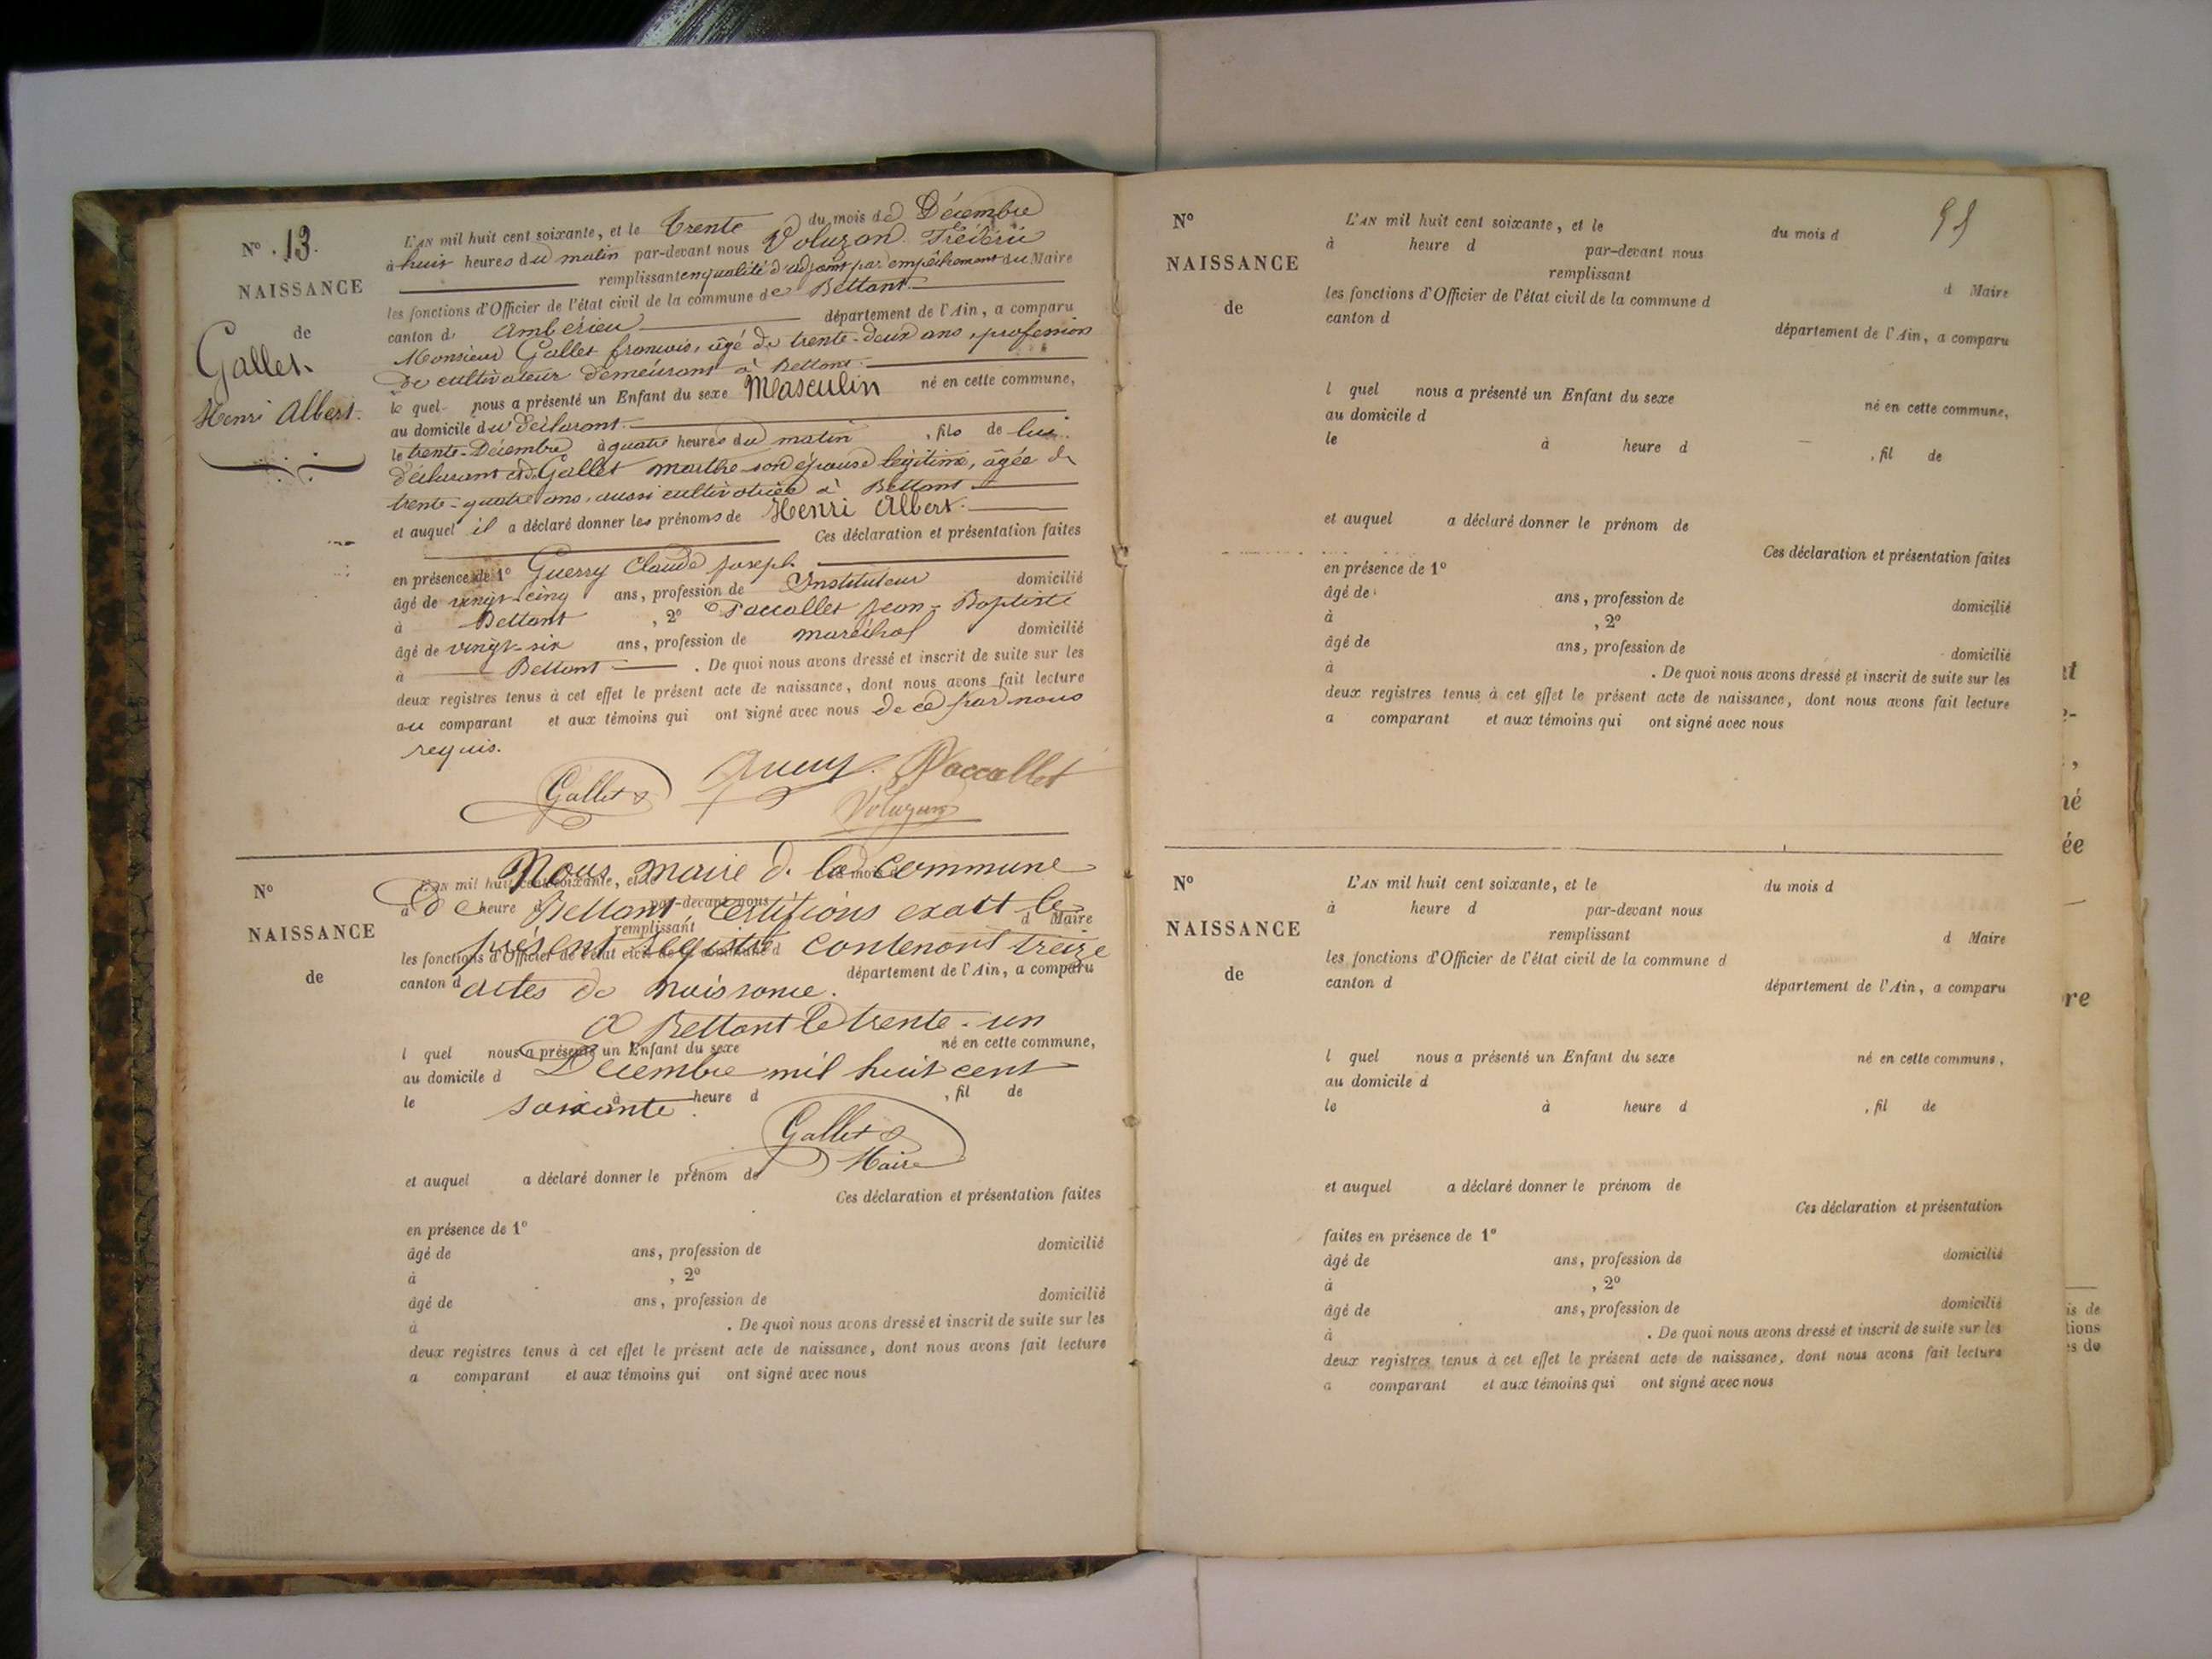 N° 13.
NAISSANCE
de
Gallet
Henri Albert.
L'AN mil huit cent soixante, et le trente du mois de Décembre
à huit heures du matin par-devant nous Voluzan Frédéric
remplissant en qualité d'adjoint par empêchement du Maire
les fonctions d'Officier de l'état civil de la commune de Bettant
canton d' Ambérieu département de l'Ain, a comparu
Monsieur Gallet françois, âgé de trente-deux ans, profession
de cultivateur demeurant à Bettant.
le quel nous a présenté un Enfant du sexe Masculin né en cette commune,
au domicile du déclarant.
le trente Décembre à quatre heures du matin , fils de lui
déclarant et de Gallet marthe son épouse légitime, âgée de
trente-quatre ans, aussi cultivatrice à Bettant
et auquel il a déclaré donner les prénoms de Henri Albert.
Ces déclaration et présentation faites
en présence de 1° Guerry Claude joseph
âgé de vingt-cinq ans, profession de Instituteur domicilié
à Bettant , 2° Paccallet jean-Baptiste
âgé de vingt-six ans, profession de maréchal domicilié
à Bettant . De quoi nous avons dressé et inscrit de suite sur les
deux registres tenus à cet effet le présent acte de naissance, dont nous avons fait lecture
au comparant et aux témoins qui ont signé avec nous de ce par nous
requis.
Gallet Guerry. Paccallet
Voluzan
N°
NAISSANCE
de
L'AN mil huit cent soixante, et le du mois d
à heure d par-devant nous
remplissant d Maire
les fonctions d'Officier de l'état civil de la commune d
canton d département de l'Ain, a comparu
Nous, maire de la commune
de Bettant, certifions exact le
présent registre contenant treize
actes de naissance.
A Bettant le trente-un
Décembre mil huit cent
soixante.
Gallet
Maire
l quel nous a présenté un Enfant du sexe né en cette commune,
au domicile d
le à heure d , fil de
et auquel a déclaré donner le prénom de
Ces déclaration et présentation faites
en présence de 1°
âgé de ans, profession de domicilié
à , 2°
âgé de ans, profession de domicilié
à . De quoi nous avons dressé et inscrit de suite sur les
deux registres tenus à cet effet le présent acte de naissance, dont nous avons fait lecture
a comparant et aux témoins qui ont signé avec nous
N°
NAISSANCE
de
L'AN mil huit cent soixante, et le du mois d
à heure d par-devant nous
remplissant d Maire
les fonctions d'Officier de l'état civil de la commune d
canton d département de l'Ain, a comparu
l quel nous a présenté un Enfant du sexe né en cette commune,
au domicile d
le à heure d , fil de
et auquel a déclaré donner le prénom de
Ces déclaration et présentation faites
en présence de 1°
âgé de ans, profession de domicilié
à , 2°
âgé de ans, profession de domicilié
à . De quoi nous avons dressé et inscrit de suite sur les
deux registres tenus à cet effet le présent acte de naissance, dont nous avons fait lecture
a comparant et aux témoins qui ont signé avec nous
N°
NAISSANCE
de
L'AN mil huit cent soixante, et le du mois d
à heure d par-devant nous
remplissant d Maire
les fonctions d'Officier de l'état civil de la commune d
canton d département de l'Ain, a comparu
l quel nous a présenté un Enfant du sexe né en cette commune,
au domicile d
le à heure d , fil de
et auquel a déclaré donner le prénom de
Ces déclaration et présentation
faites en présence de 1°
âgé de ans, profession de domicilié
à , 2°
âgé de ans, profession de domicilié
à . De quoi nous avons dressé et inscrit de suite sur les
deux registres tenus à cet effet le présent acte de naissance, dont nous avons fait lecture
a comparant et aux témoins qui ont signé avec nous